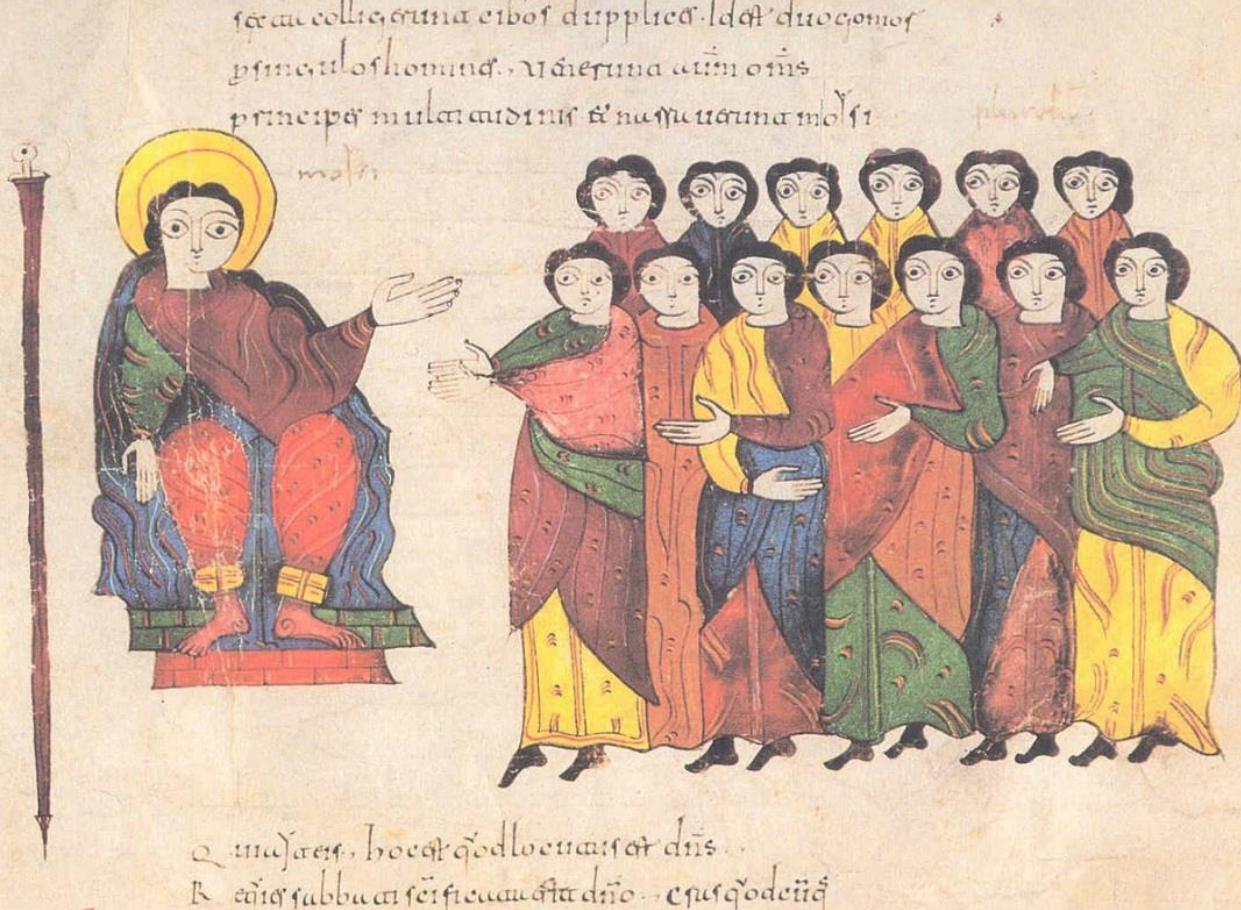 sexta colligerunt cibos dupplices. Idest duo gomor
psingulos homines. Uenerunt aūm om̄s
principes multitudinis & narrauerunt moysi
moysi
Qui ait eis. hoc est q̄od locutus est dn̄s
Requies sabbati sc̄ificata est dn̄o. cras q̄odcūq̄